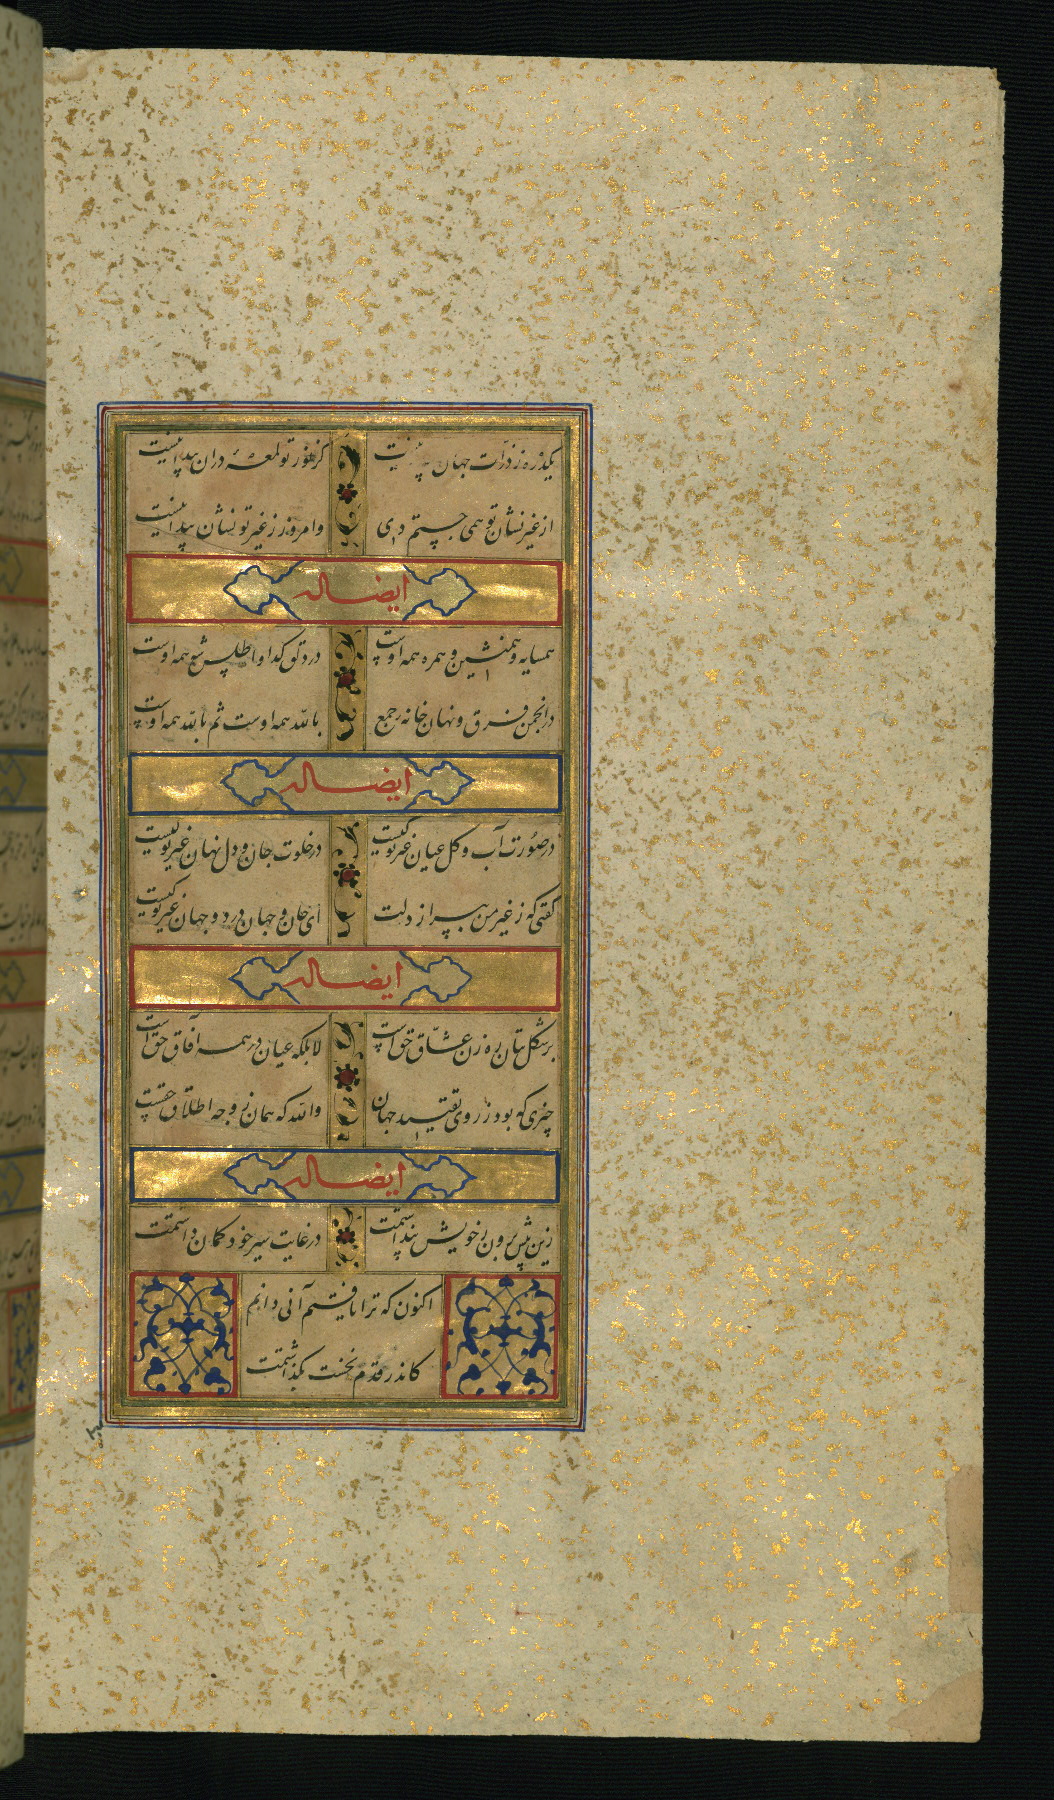 یکذره ز ذرات جهان پیدا نیست کز نور تو لمعهٔ دران پیدا نیست
از غیر نشان تو همی جستم دی وامروز ز غیر تو نشان پیدا نیست
ایضاله
همسایه و همنشین و همره همه اوست در دلق گدا و اطلس شه همه اوست
در انجمن فرق و نهان خانه جمع بالله همه اوست ثم بالله همه اوست
ایضاله
در صورت آب و گل عیان غیر تو کیست در خلوت جان و دل نهان غیر تو کیست
گفتی که ز غیر من بپرداز دلت ای جان و جهان در دو جهان غیر تو کیست
ایضاله
بر شکل بتان رهزن عشاق حق است لا بلکه عیان در همه آفاق حق است
چیزی که بود ز روی تقیید جهان والله که همان ز وجه اطلاق حقست
ایضاله
زین پیش برون ز خویش پنداشتمت در غایت سیر خود گمان داشتمت
اکنون که ترا یافتم آنی دانم
کاندر قدم نخست بگذاشتمت